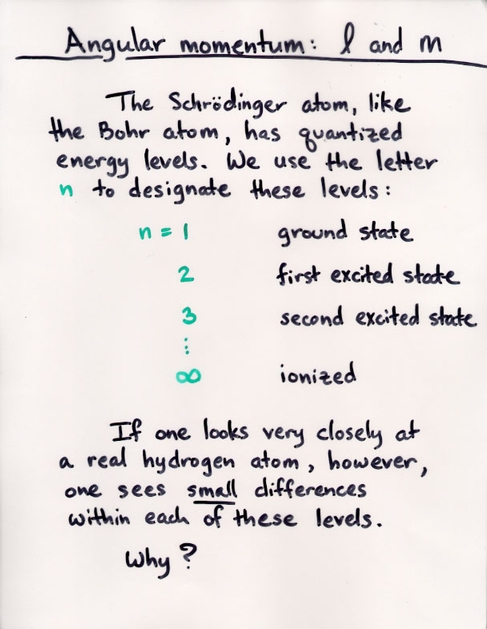 Angular momentum: l and m
The Schrödinger atom, like
the Bohr atom, has quantized
energy levels. We use the letter
n to designate these levels:
n = 1 ground state
2 first excited state
3 second excited state
⋮
∞ ionized
If one looks very closely at
a real hydrogen atom, however,
one sees small differences
within each of these levels.
Why?